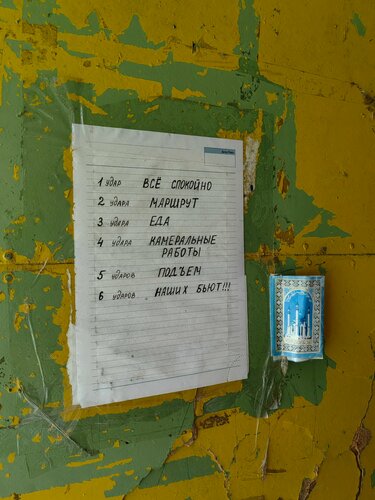 1 удар ВСЁ СПОКОЙНО
2 удара МАРШРУТ
3 удара ЕДА
4 удара КАМЕРАЛЬНЫЕ
РАБОТЫ
5 ударов ПОДЪЕМ
6 ударов НАШИХ БЬЮТ!!!